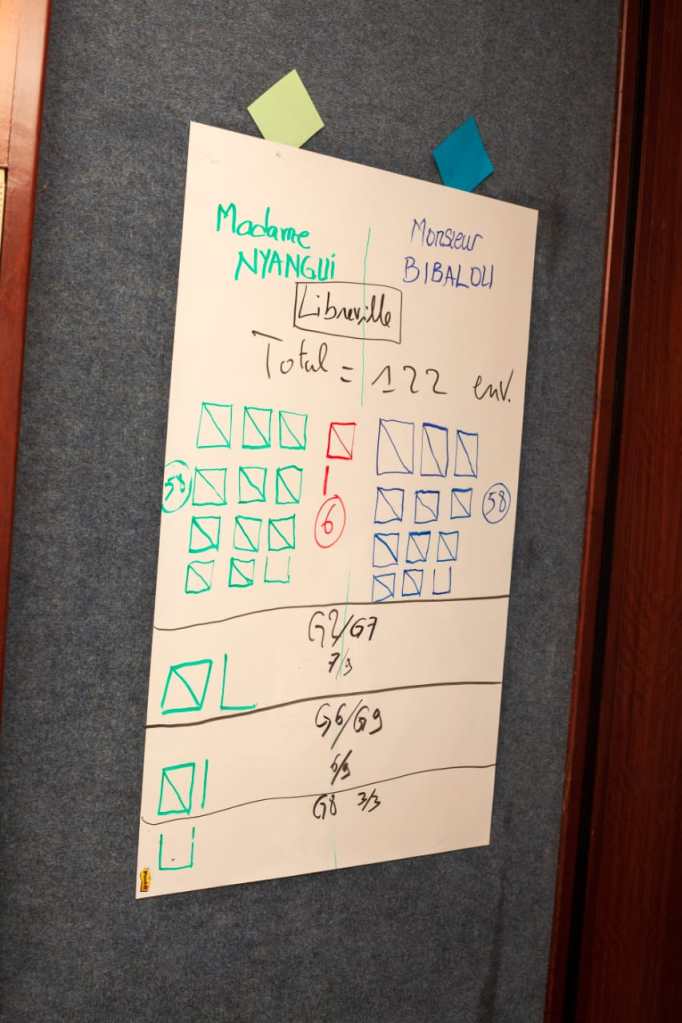 Madame
NYANGUI
Monsieur
BIBALOU
Libreville
Total = 122 env.
58
6
58
G2/G7
7/9
G6/G9
6/9
G8 3/3